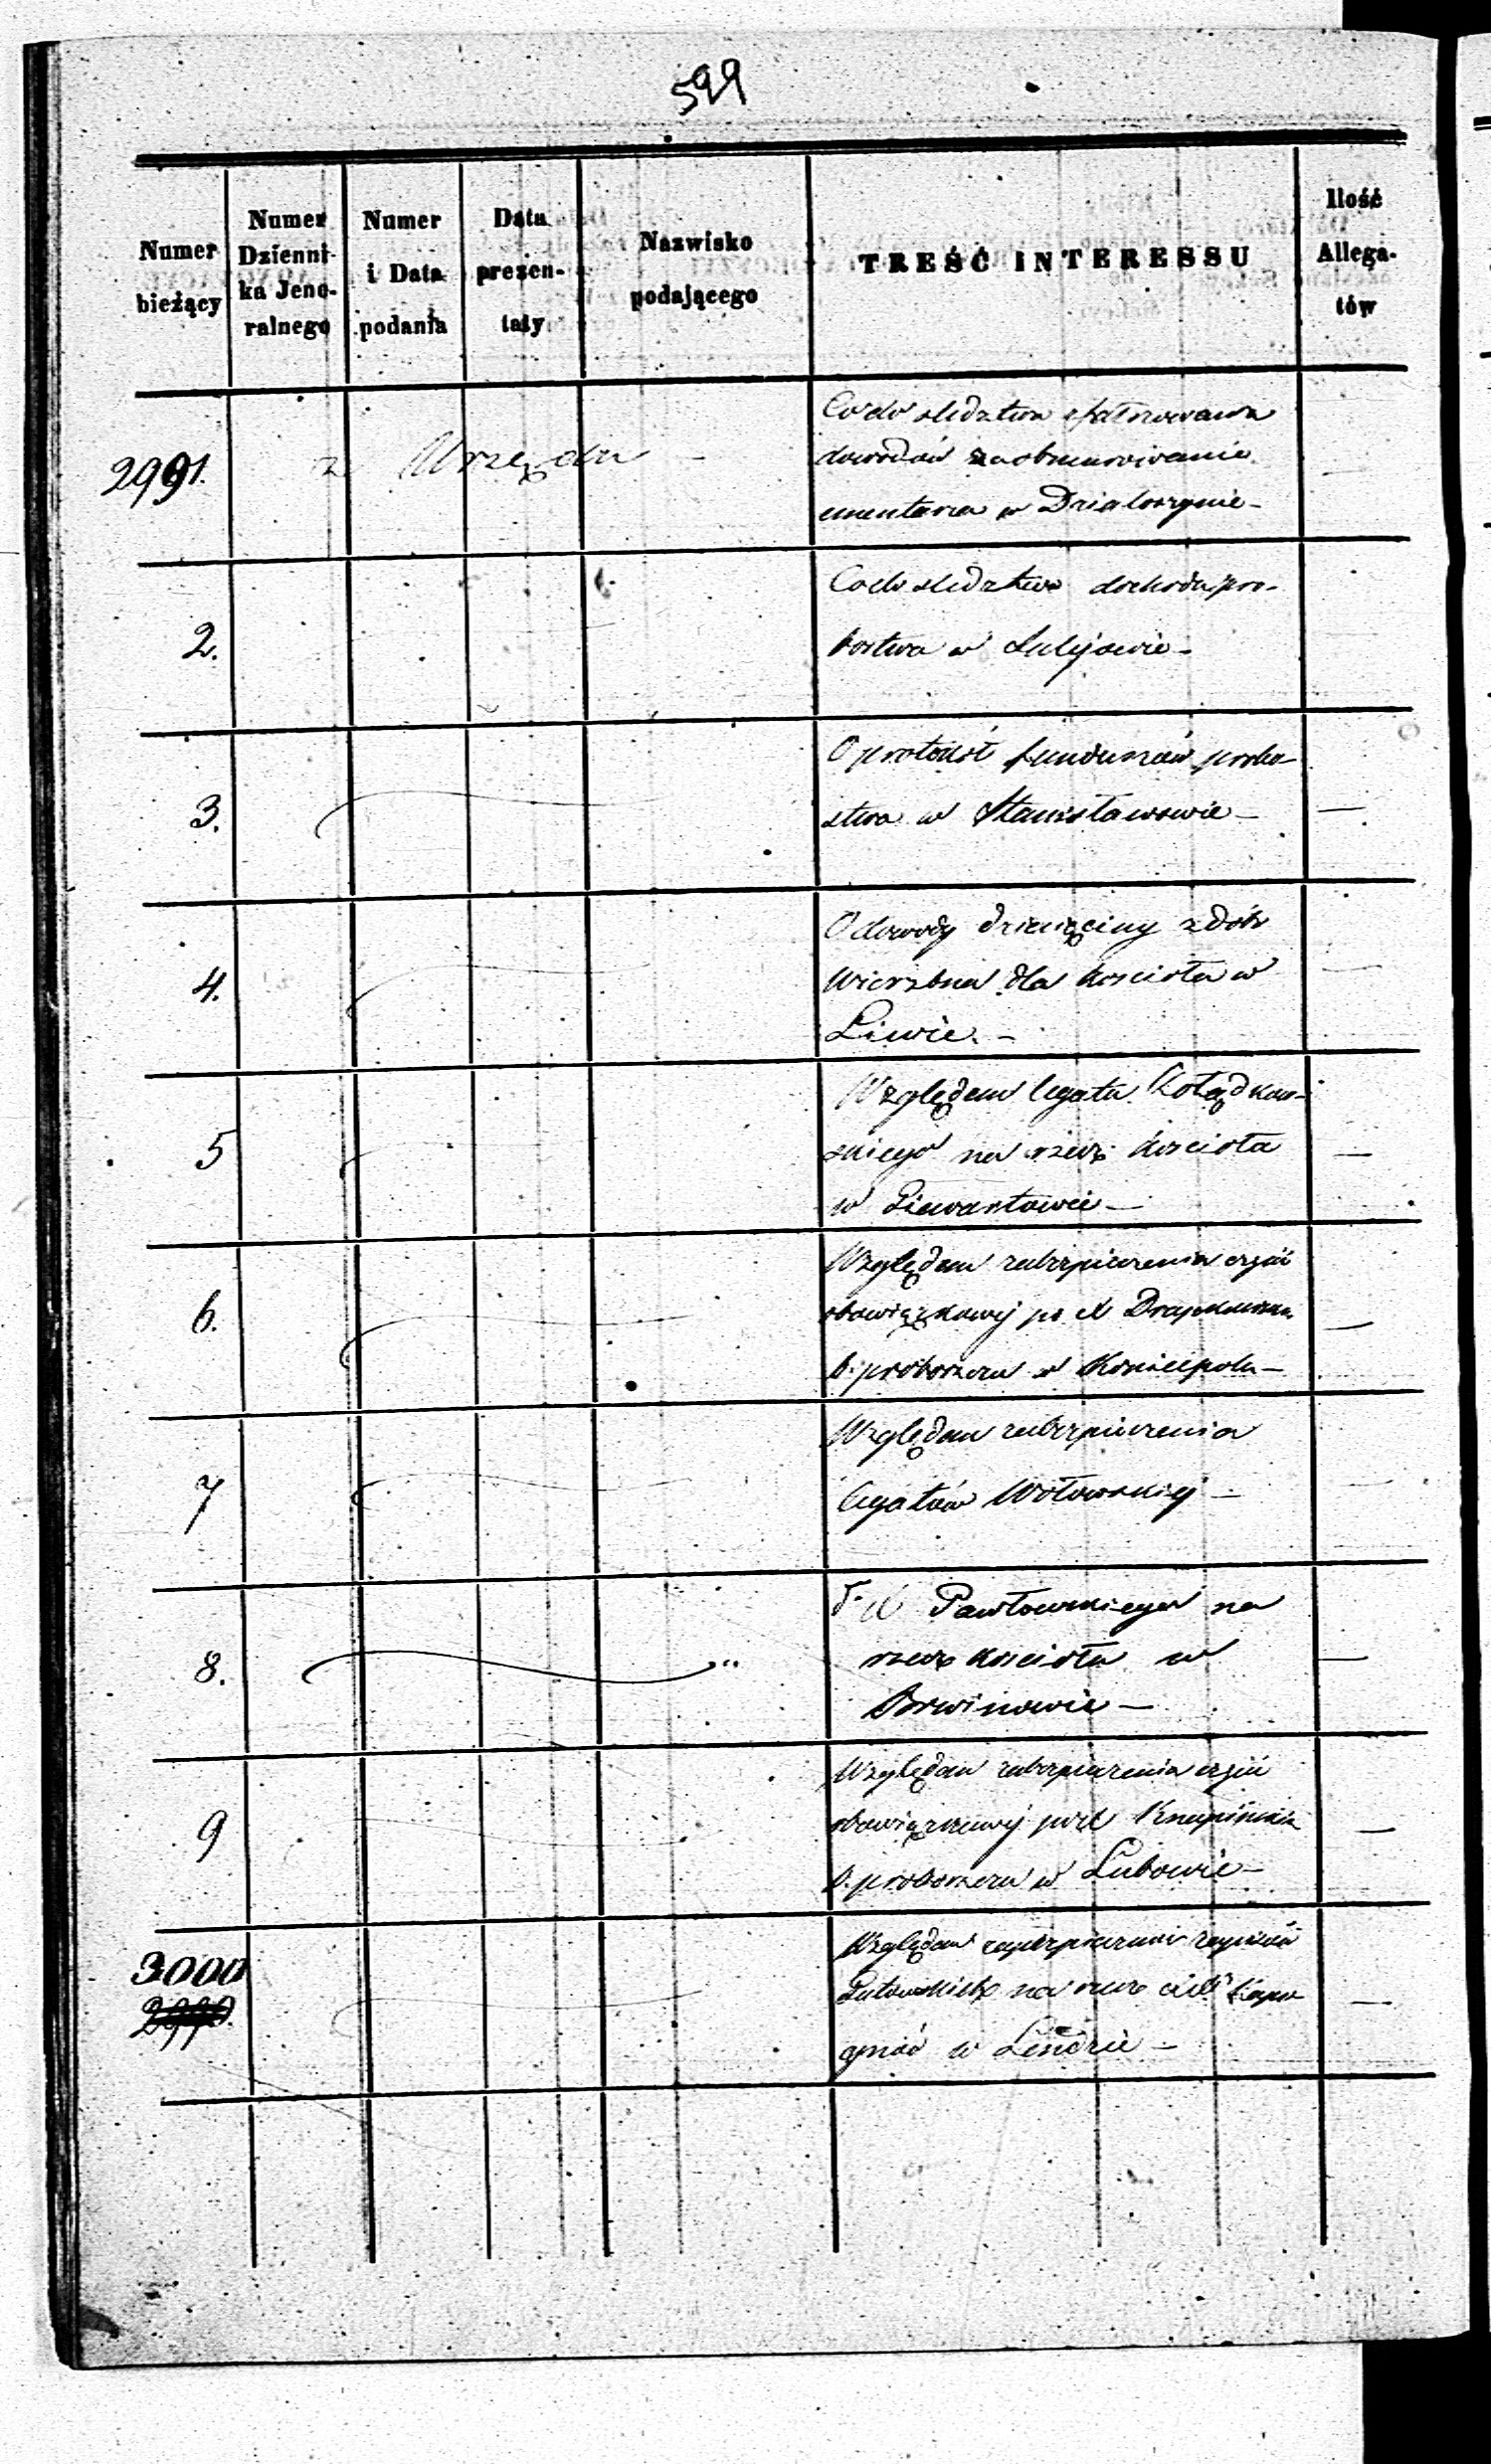 599
Numer bieżący
Numer Dzienni- ka Jene- ralnego
Numer i Data podania
Data prezen- taty
Nazwisko podającego
TREŚĆ INTERESSU
Ilość Allega- tów
2991. z Urzędu -
Co do śledztwa
dowodów za obmurowanie
cmentarza w Działoszynie -
2.
Co do śledztwa dochodu pro-
bostwa w Sulejowie -
3.
O protokół funduszów probo-
stwa w Stanisławowie -
4.
O dowody dziesięciny z dóbr
Wierzbna dla kościoła w
Liwie. -
5
Względem legatu Kołądkow-
skiego na rzecz kościoła
w -
6.
Względem zabezpieczenia części
obowiązkowej po X
b. proboszczu w Koniecpolu -
7
Względem zabezpieczenia
legatów Wołowskiej -
8. "
do X Pawłowskiego na
rzecz kościoła w
Brwinowie -
9
Względem zabezpieczenia części
obowiązkowej po X Krupińskim
b. proboszczu w Lubowie -
3000
2990.
Względem zapisów
na rzecz
w Lendzie -